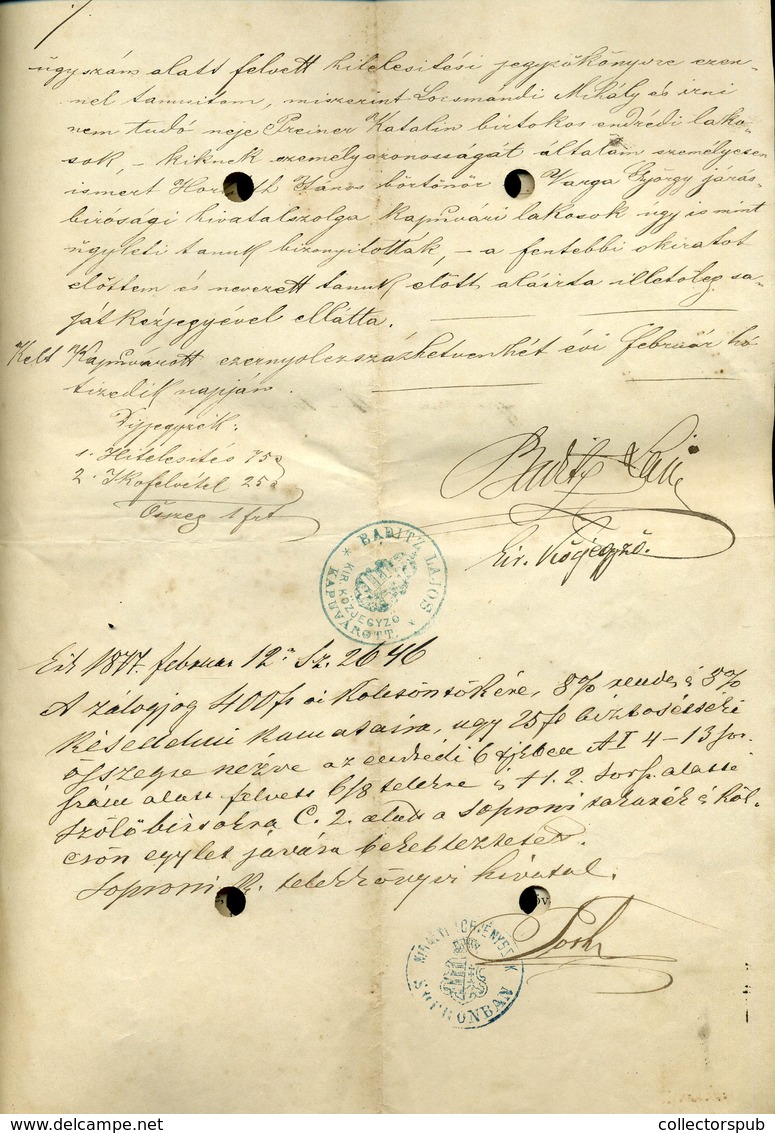 ügyszám alatt felvett hitelesitési jegyzőkönyvre ezen-
nel tanusitom, miszerint Locsmándi Mihály és irni
nem tudó neje Preiner Katalin birtokos endrédi lako-
sok, – kiknek személyazonosságát általam személyesen
ismert János börtönőr Varga György járás-
birósági hivatalszolga kapuvári lakosok úgy is mint
ügyleti tanuk bizonyitották, – a fentebbi okiratot
előttem és nevezett tanuk előtt aláirta illetőleg sa-
ját kézjegyével ellátta.
Kelt Kapuvárott ezernyolczszázhetvenhét évi február hó
tizedik napján.
Dijjegyzék:
1. Hitelesités 75
2. Ikofelvétel 25
Összeg 1 frt
Baditz Lajos
kir. közjegyző.
BADITZ LAJOS
KIR. KÖZJEGYZŐ
KAPUVÁROTT.
Érk 1877. februar 12én Sz. 2646
A zálogjog 400 ft kölcsöntőkére, 8% rendes é 8%
késedelmi kamataira, ugy 25 ft biztositéki
összegre nézve az endrédi 6 A I 4-13 sor
szám alatt felvett 6/8 telekre é 2. sorsz. alatti
szőlőbirtokra C. 2. alatt a soproni takarék é köl-
csön egylet javára bekebleztetett.
Soproni telekkönyvi hivatal.
SOPRONBAN